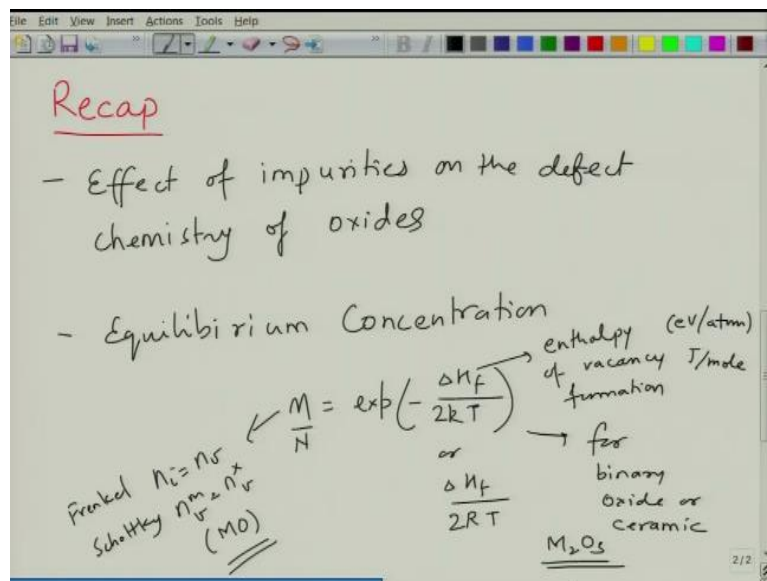 File Edit View Insert Actions Tools Help
Recap
- Effect of impurities on the defect
chemistry of oxides
- Equilibirium Concentration
n/N = exp(- ΔHf/2kT)
or
ΔHf/2RT
enthalpy (eV/atom)
of vacancy J/mole
formation
for
binary
oxide or
ceramic
M2O3
Frenkel ni = nv
Schottky nv^m = nv^x
(MO)
2/2